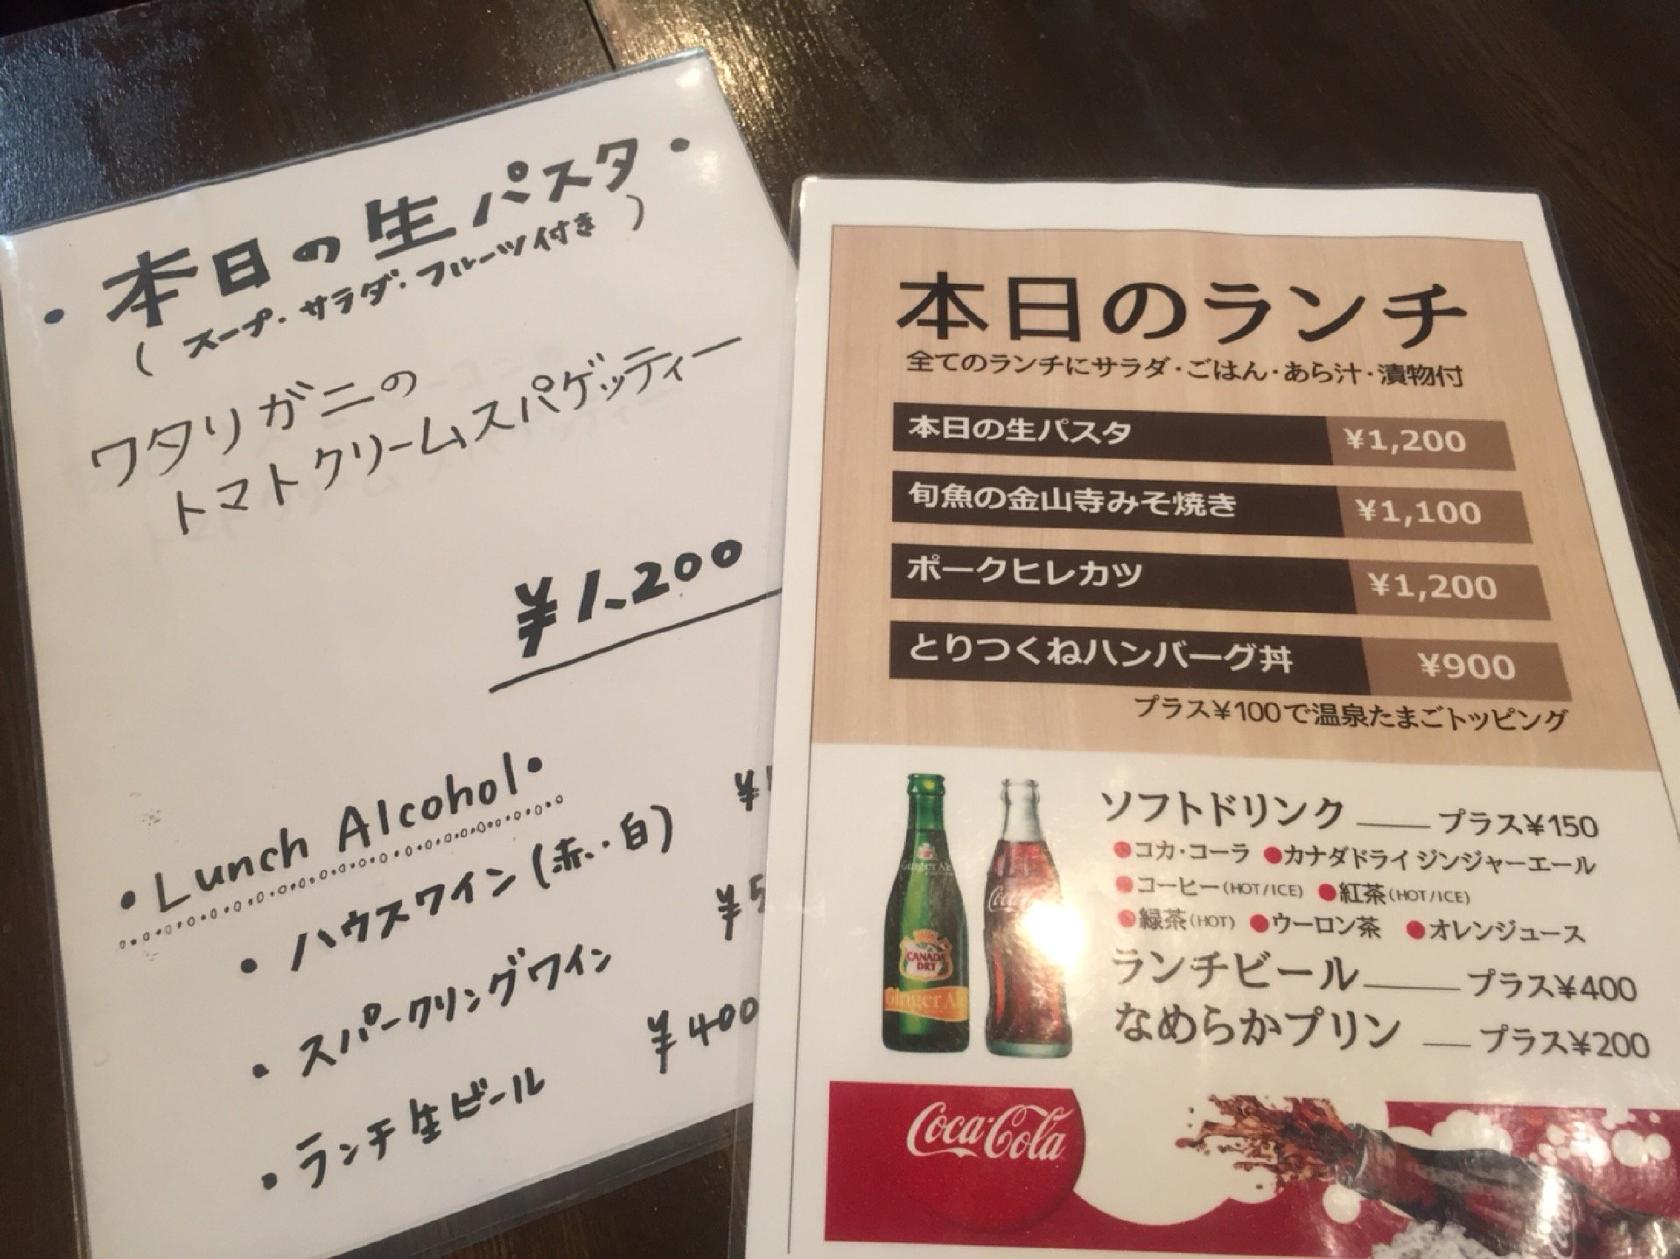 ・本日の生パスタ・
(スープ・サラダ・フルーツ付き)
ワタリガニの
トマトクリームスパゲッティー
¥1,200
・Lunch Alcohol・
・ハウスワイン(赤・白)
・スパークリングワイン
・ランチ生ビール ¥400
本日のランチ
全てのランチにサラダ・ごはん・あら汁・漬物付
本日の生パスタ ¥1,200
旬魚の金山寺みそ焼き ¥1,100
ポークヒレカツ ¥1,200
とりつくねハンバーグ丼 ¥900
プラス¥100で温泉たまごトッピング
ソフトドリンク プラス¥150
●コカ・コーラ ●カナダドライ ジンジャーエール
●コーヒー(HOT/ICE) ●紅茶(HOT/ICE)
●緑茶(HOT) ●ウーロン茶 ●オレンジュース
ランチビール プラス¥400
なめらかプリン プラス¥200
CANADA
DRY
Ginger Ale
Coca-Cola